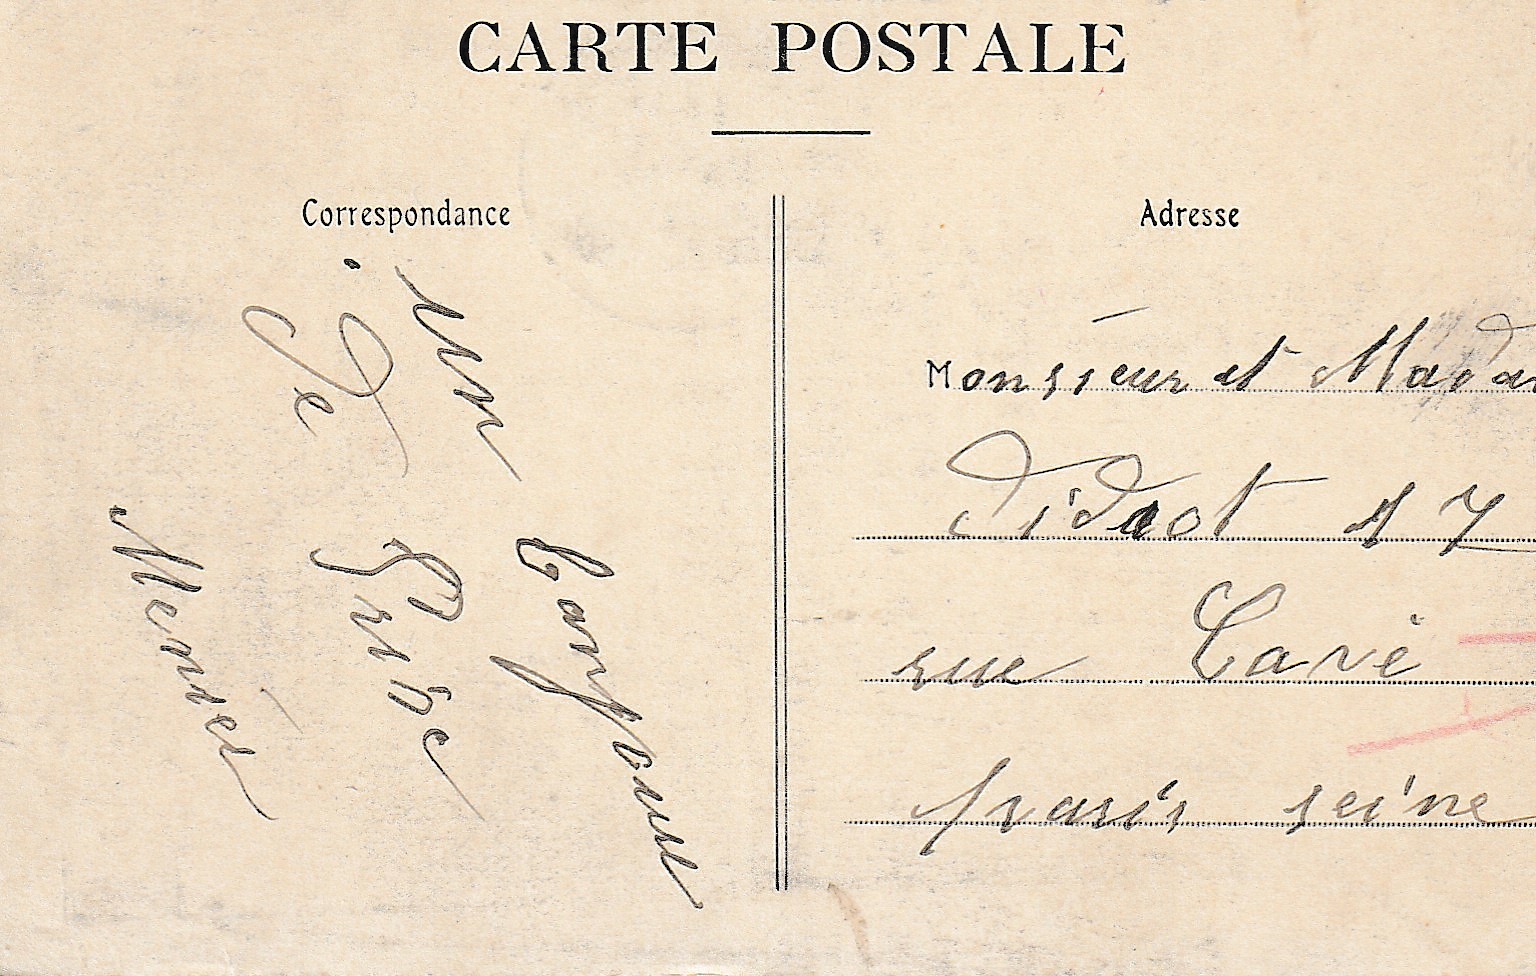 CARTE POSTALE
Correspondance
un bonjour
De
Menier
Adresse
Monsieur et Mada
Didrot 17
rue Cavé
paris seine